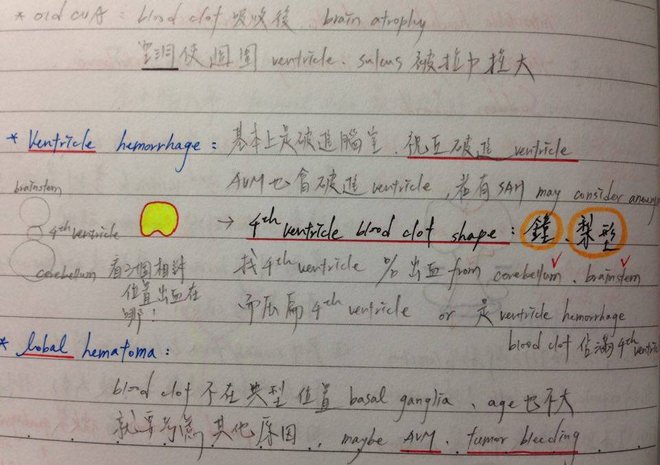 * old CVA : blood clot 吸收後 brain atrophy
空洞使周圍 ventricle、sulcus 被拉扯擴大
* Ventricle hemorrhage : 基本上是破進腦室、視丘破進 ventricle
AVM也會破進 ventricle , 若有 SAH may consider
brainstem
4th ventricle
→ 4th ventricle blood clot shape : 鐘、梨形
cerebellum 看3個相對
位置出血在
哪!
找 4th ventricle 出血 from cerebellum、brainstem
而壓扁 4th ventricle or 是 ventricle hemorrhage
blood clot 佔滿 4th
* Lobal hematoma :
blood clot 不在典型位置 basal ganglia、age也不大
就要考慮其他原因 , maybe AVM、tumor bleeding